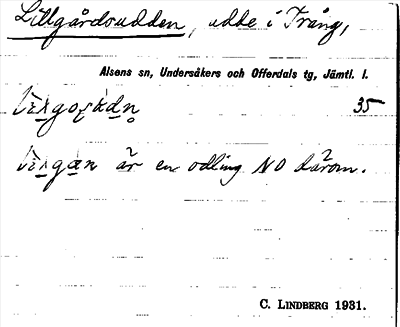 Lillgårdsudden, udde i Trång,
Alsens sn, Undersåkers och Offerdals tg, Jämtl. l.
35
är en odling NO därom.
C. LINDBERG 1931.